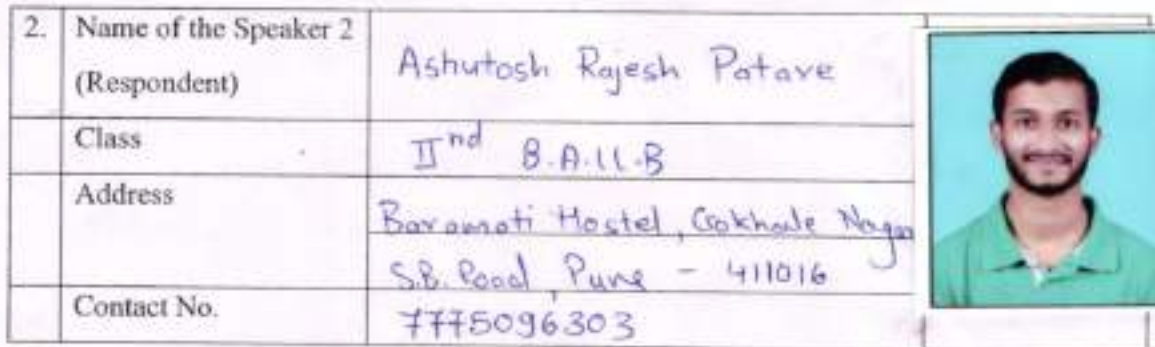 2. Name of the Speaker 2
(Respondent)
Ashutosh Rajesh Patave
Class
IInd B.A.LL.B
Address
Baramati Hostel, Gokhale Nagar
S.B. Road, Pune - 411016
Contact No.
7775096303